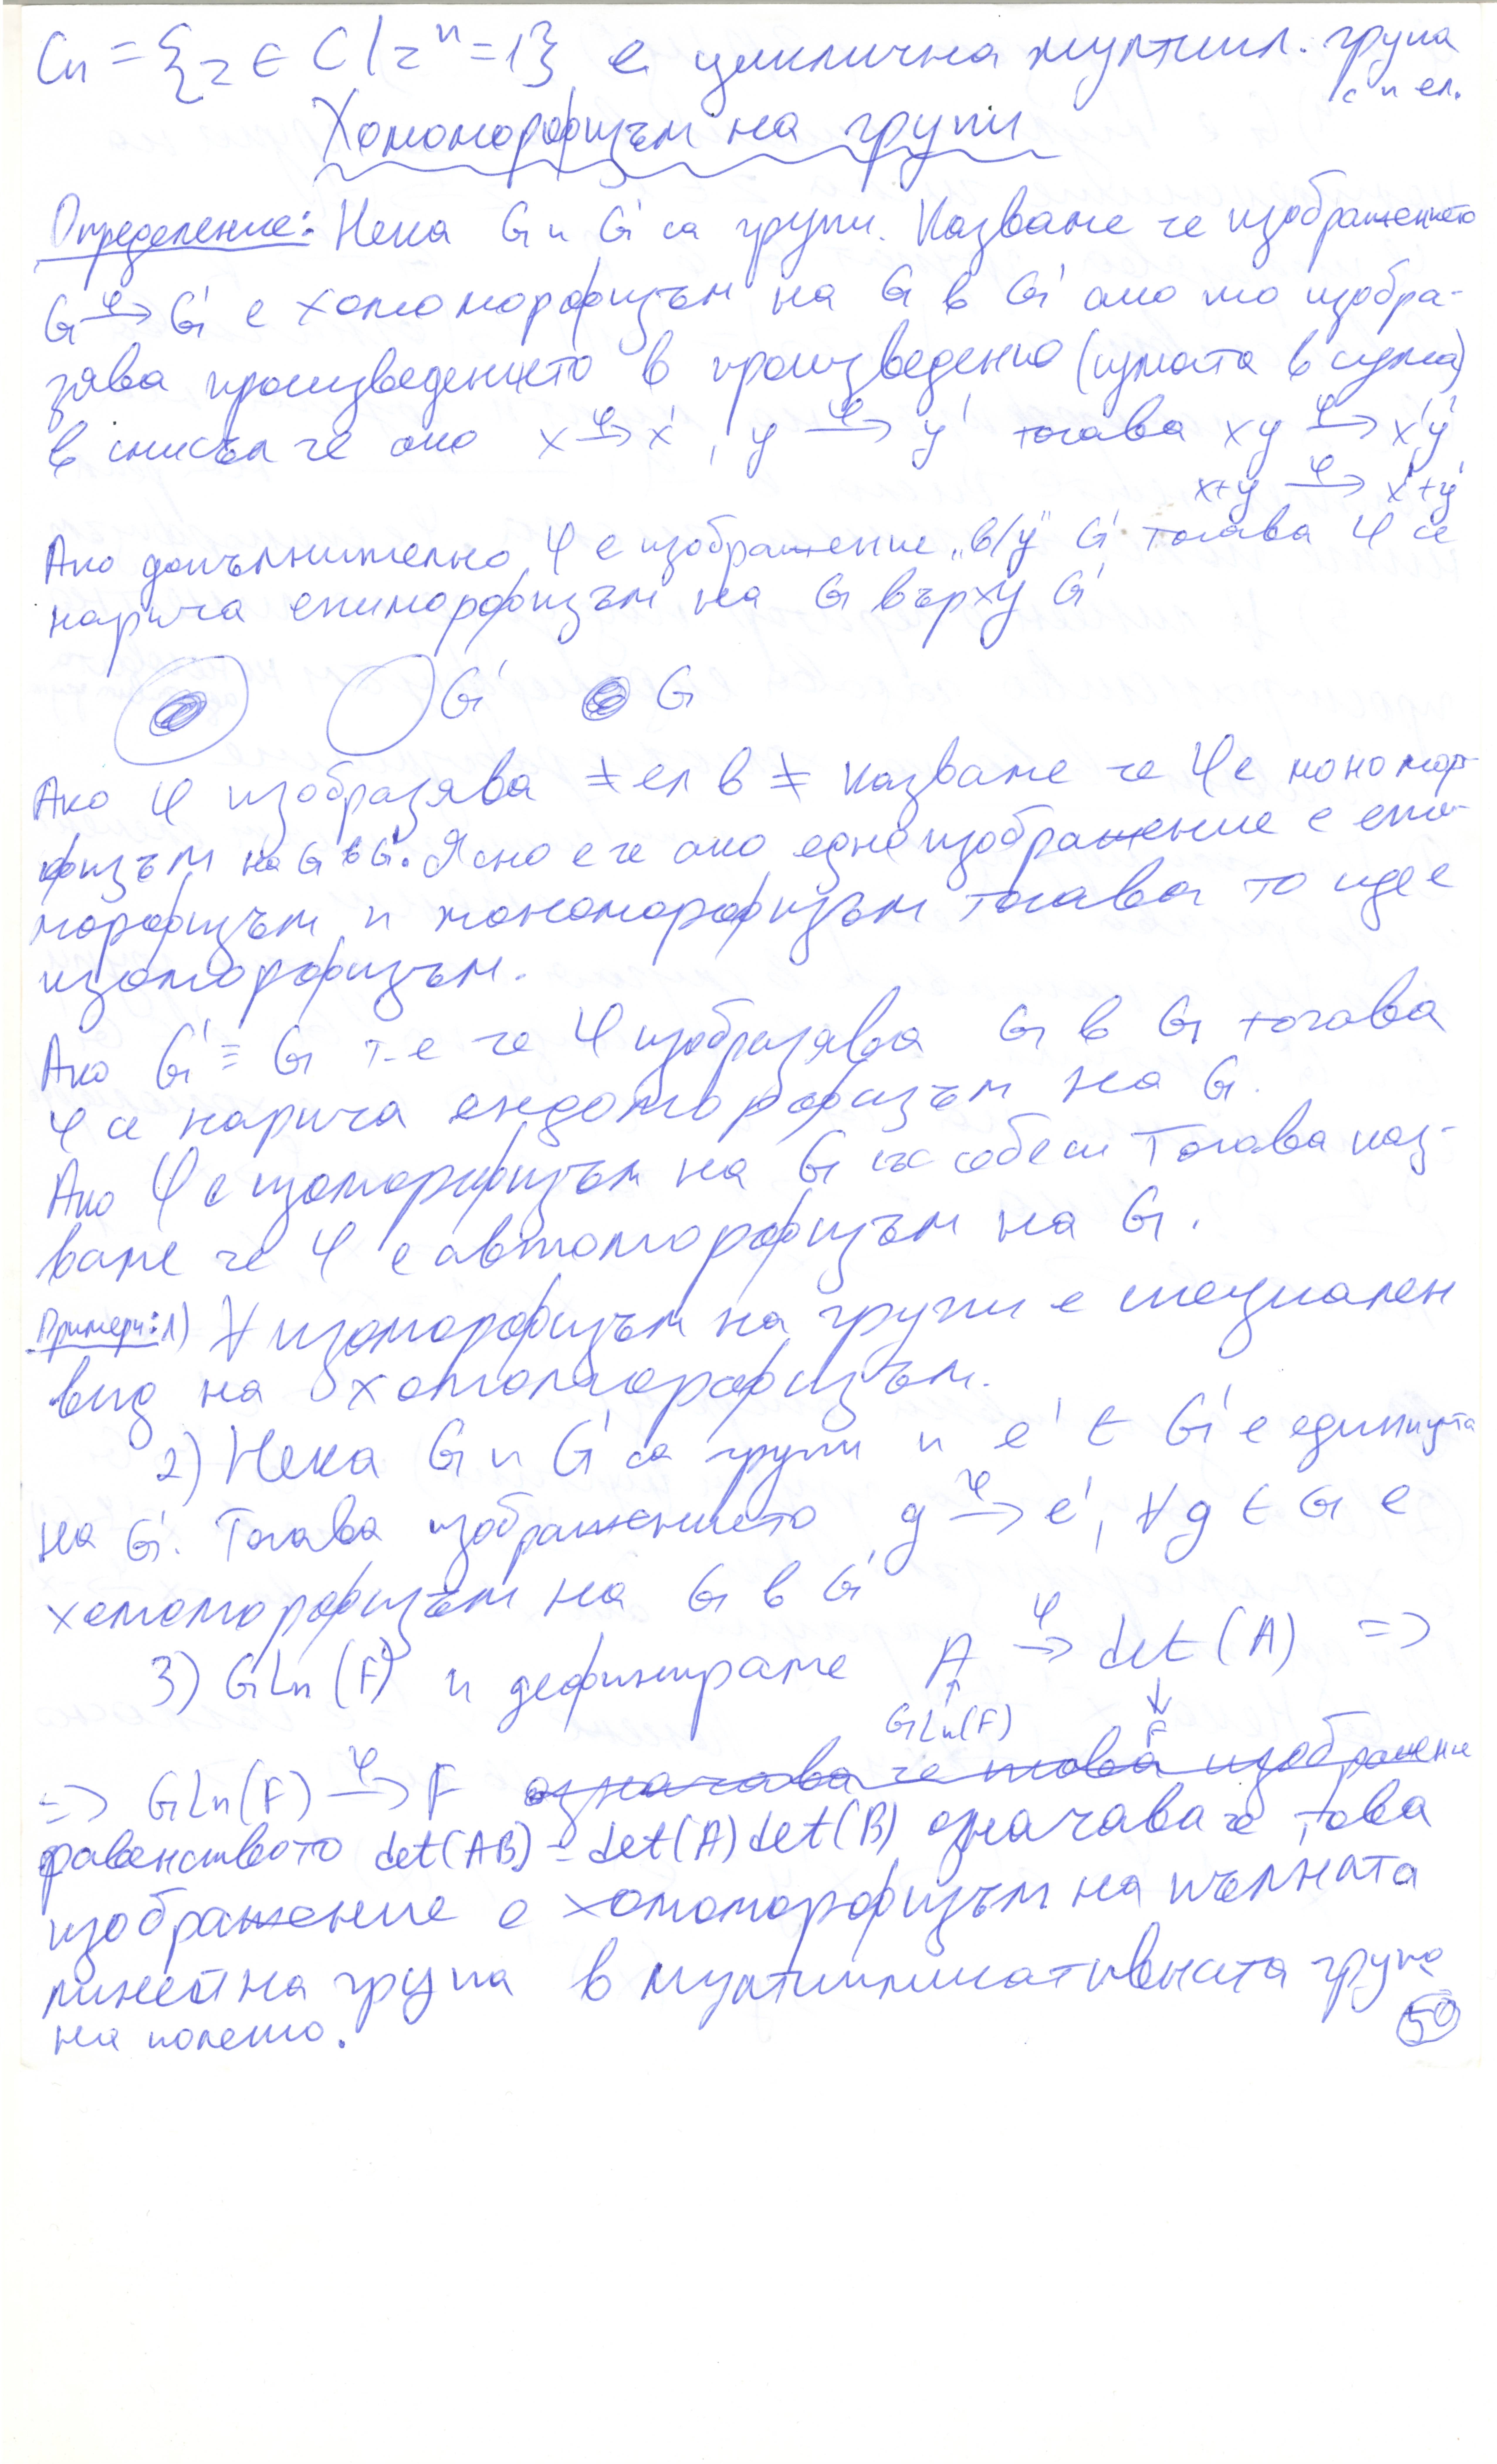 Cn = {z ∈ C | zⁿ = 1} е циклична мултипл. група
с n ел.
Хомоморфизъм на групи
Определение: Нека G и G' са групи. Казваме че изображението
G –φ→ G' е хомоморфизъм на G в G' ако то изобра-
зява произведението в произведение (сумата в сума)
в смисъл че ако x –φ→ x', y –φ→ y' тогава xy –φ→ x'y'
x+y –φ→ x'+y'
Ако допълнително φ е изображение „в/у" G' тогава φ се
нарича епиморфизъм на G върху G'
G' G
Ако φ изобразява ≠ ел в ≠ казваме че φ е мономор-
физъм на G в G'. Ясно е че ако едно изображение е епи-
морфизъм и мономорфизъм тогава то ще е
изоморфизъм.
Ако G' ≡ G т.е че φ изобразява G в G тогава
φ се нарича ендоморфизъм на G.
Ако φ е изоморфизъм на G със себе си тогава каз-
ваме че φ е автоморфизъм на G.
Примери: 1) ∀ изоморфизъм на групи е специален
вид на хомоморфизъм.
2) Нека G и G' са групи и e' ∈ G' е единицата
на G'. Тогава изображението g –φ→ e', ∀ g ∈ G е
хомоморфизъм на G в G'
3) GLn(F) и дефинираме A –φ→ det(A) =>
GLn(F) F
=> GLn(F) –φ→ F означава че това изображение
равенството det(AB) = det(A)det(B) означава че това
изображение е хомоморфизъм на пълната
линейна група в мултипликативната група
на полето.
50